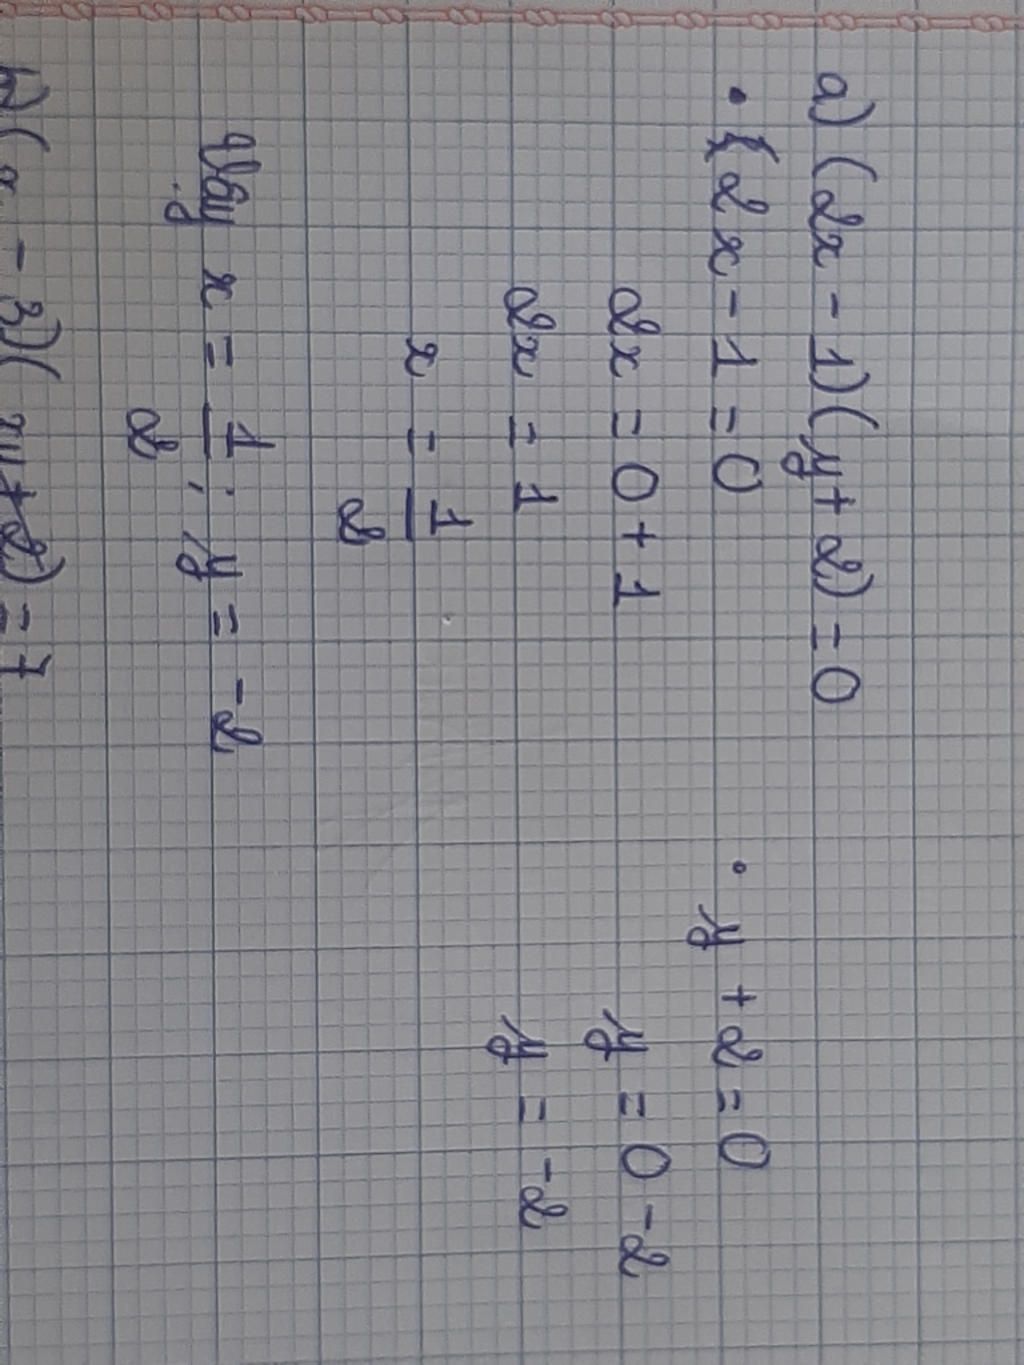 a) (2x - 1)(y + 2) = 0
• 2x - 1 = 0 • y + 2 = 0
2x = 0 + 1 y = 0 - 2
2x = 1 y = -2
x = 1/2
Vậy x = 1/2 ; y = -2
b) (x - 3)( y + 2) = 7